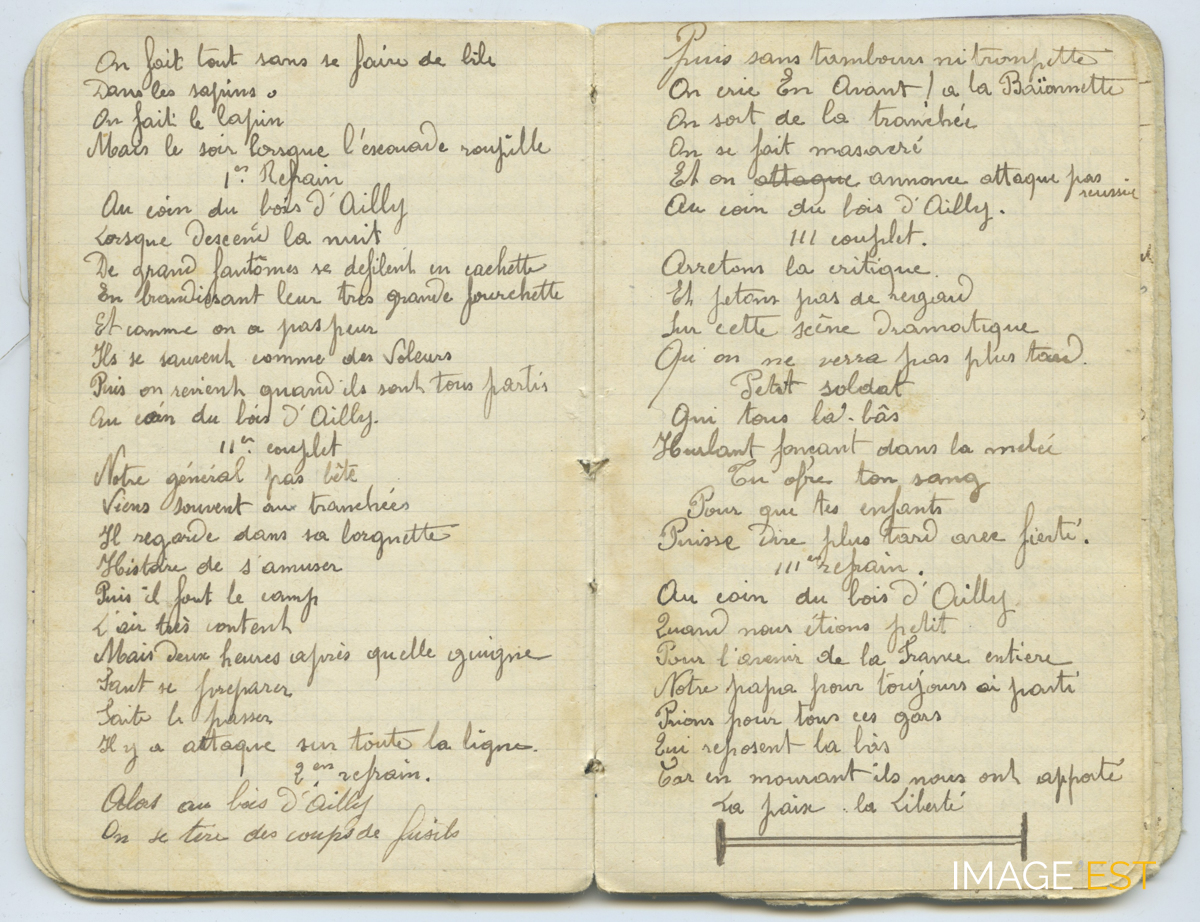 On fait tout sans se faire de bile
Dans les sapins.
On fait le lapin
Mais le soir lorsque l'escouade roupille
1er. Refrain
Au coin du bois d'Ailly
Lorsque descend la nuit
De grand fantômes se defilent en cachette
En brandissant leur tres grande fourchette
Et comme on a pas peur
Ils se sauvent comme des Voleurs
Puis on revient quand ils sont tous partis
Au coin du bois d'Ailly.
11e. couplet
Notre général pas bête
Viens souvent aux tranchées
Il regarde dans sa lorgnette
Histoire de s'amuser
Puis il fout le camp
L'air très content
Mais deux heures après quelle guigne
Faut se preparer
Faite le passer
Il y a attaque sur toute la ligne.
2em refrain.
Alors au bois d'Ailly
On se tire des coups de fusils
Puis sans tambours ni trompette
On crie En Avant! a la Baïonnette
On sort de la tranchée
On se fait masacré
Et on attaque annonce attaque pas reussie
Au coin du bois d'Ailly.
111 couplet.
Arretons la critique.
Et jetons pas de regard
Sur cette scène dramatique
Qu'on ne verra pas plus tard.
Petit soldat
Qui tous là-bâs
Hurlant fonçant dans la melée
Tu ofre ton sang
Pour que tes enfants
Puisse dire plus tard avec fierté.
111em refrain.
Au coin du bois d'Ailly
Quand nous étions petit
Pour l'avenir de la France entiere
Notre papa pour toujours ai parti
Prions pour tous ces gars
Qui reposent la bâs
Car en mourant ils nous ont apporté
La paix la Liberté
IMAGE EST